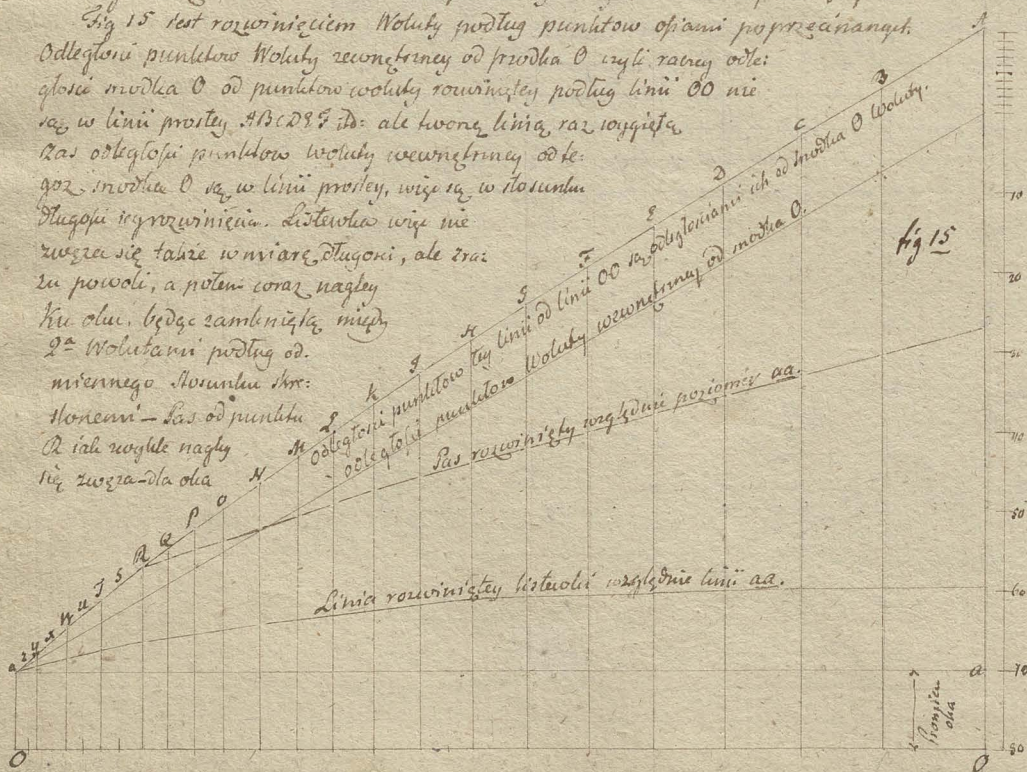 Fig 15 jest rozwinięciem Woluty podług punktow osiami poprzecinanych.
Odległości punktow Woluty zewnętrzney od środka O czyli raczey odle:
głości środka O od punktow woluty rozwiniętey podług linii OO nie
są w linii prostey ABCDEFG ale tworzą linią raz wygiętą
Zas odległości punktow woluty wewnętrzney od te:
goz środka O są w linii prostey, więc są w stosunku
długości iey rozwinięcia. Listewka więc nie
zwęza się także w miarę długości, ale zra:
zu powoli, a potem coraz nagley
Ku oku, będąc zamkniętą między
2ª Wolutami podług od.
miennego Stosunku skre:
slonemi – Pas od punktu
R iak zwykle nagley
się zwęza – dla oka
A
B
C
D
E
F
G
H
I
K
L
M
N
O
P
Q
R
S
T
U
W
X
Y
Z
a
Odległości punktow tey linii od linii OO są odległościami ich od środka O Woluty.
odległości punktow Woluty wewnętrzney od środka O.
Pas rozwinięty względnie poziomey aa.
Linia rozwiniętey listewki względnie linii aa.
fig 15
10
20
30
40
50
60
70
80
a
Promien
oka
O
O